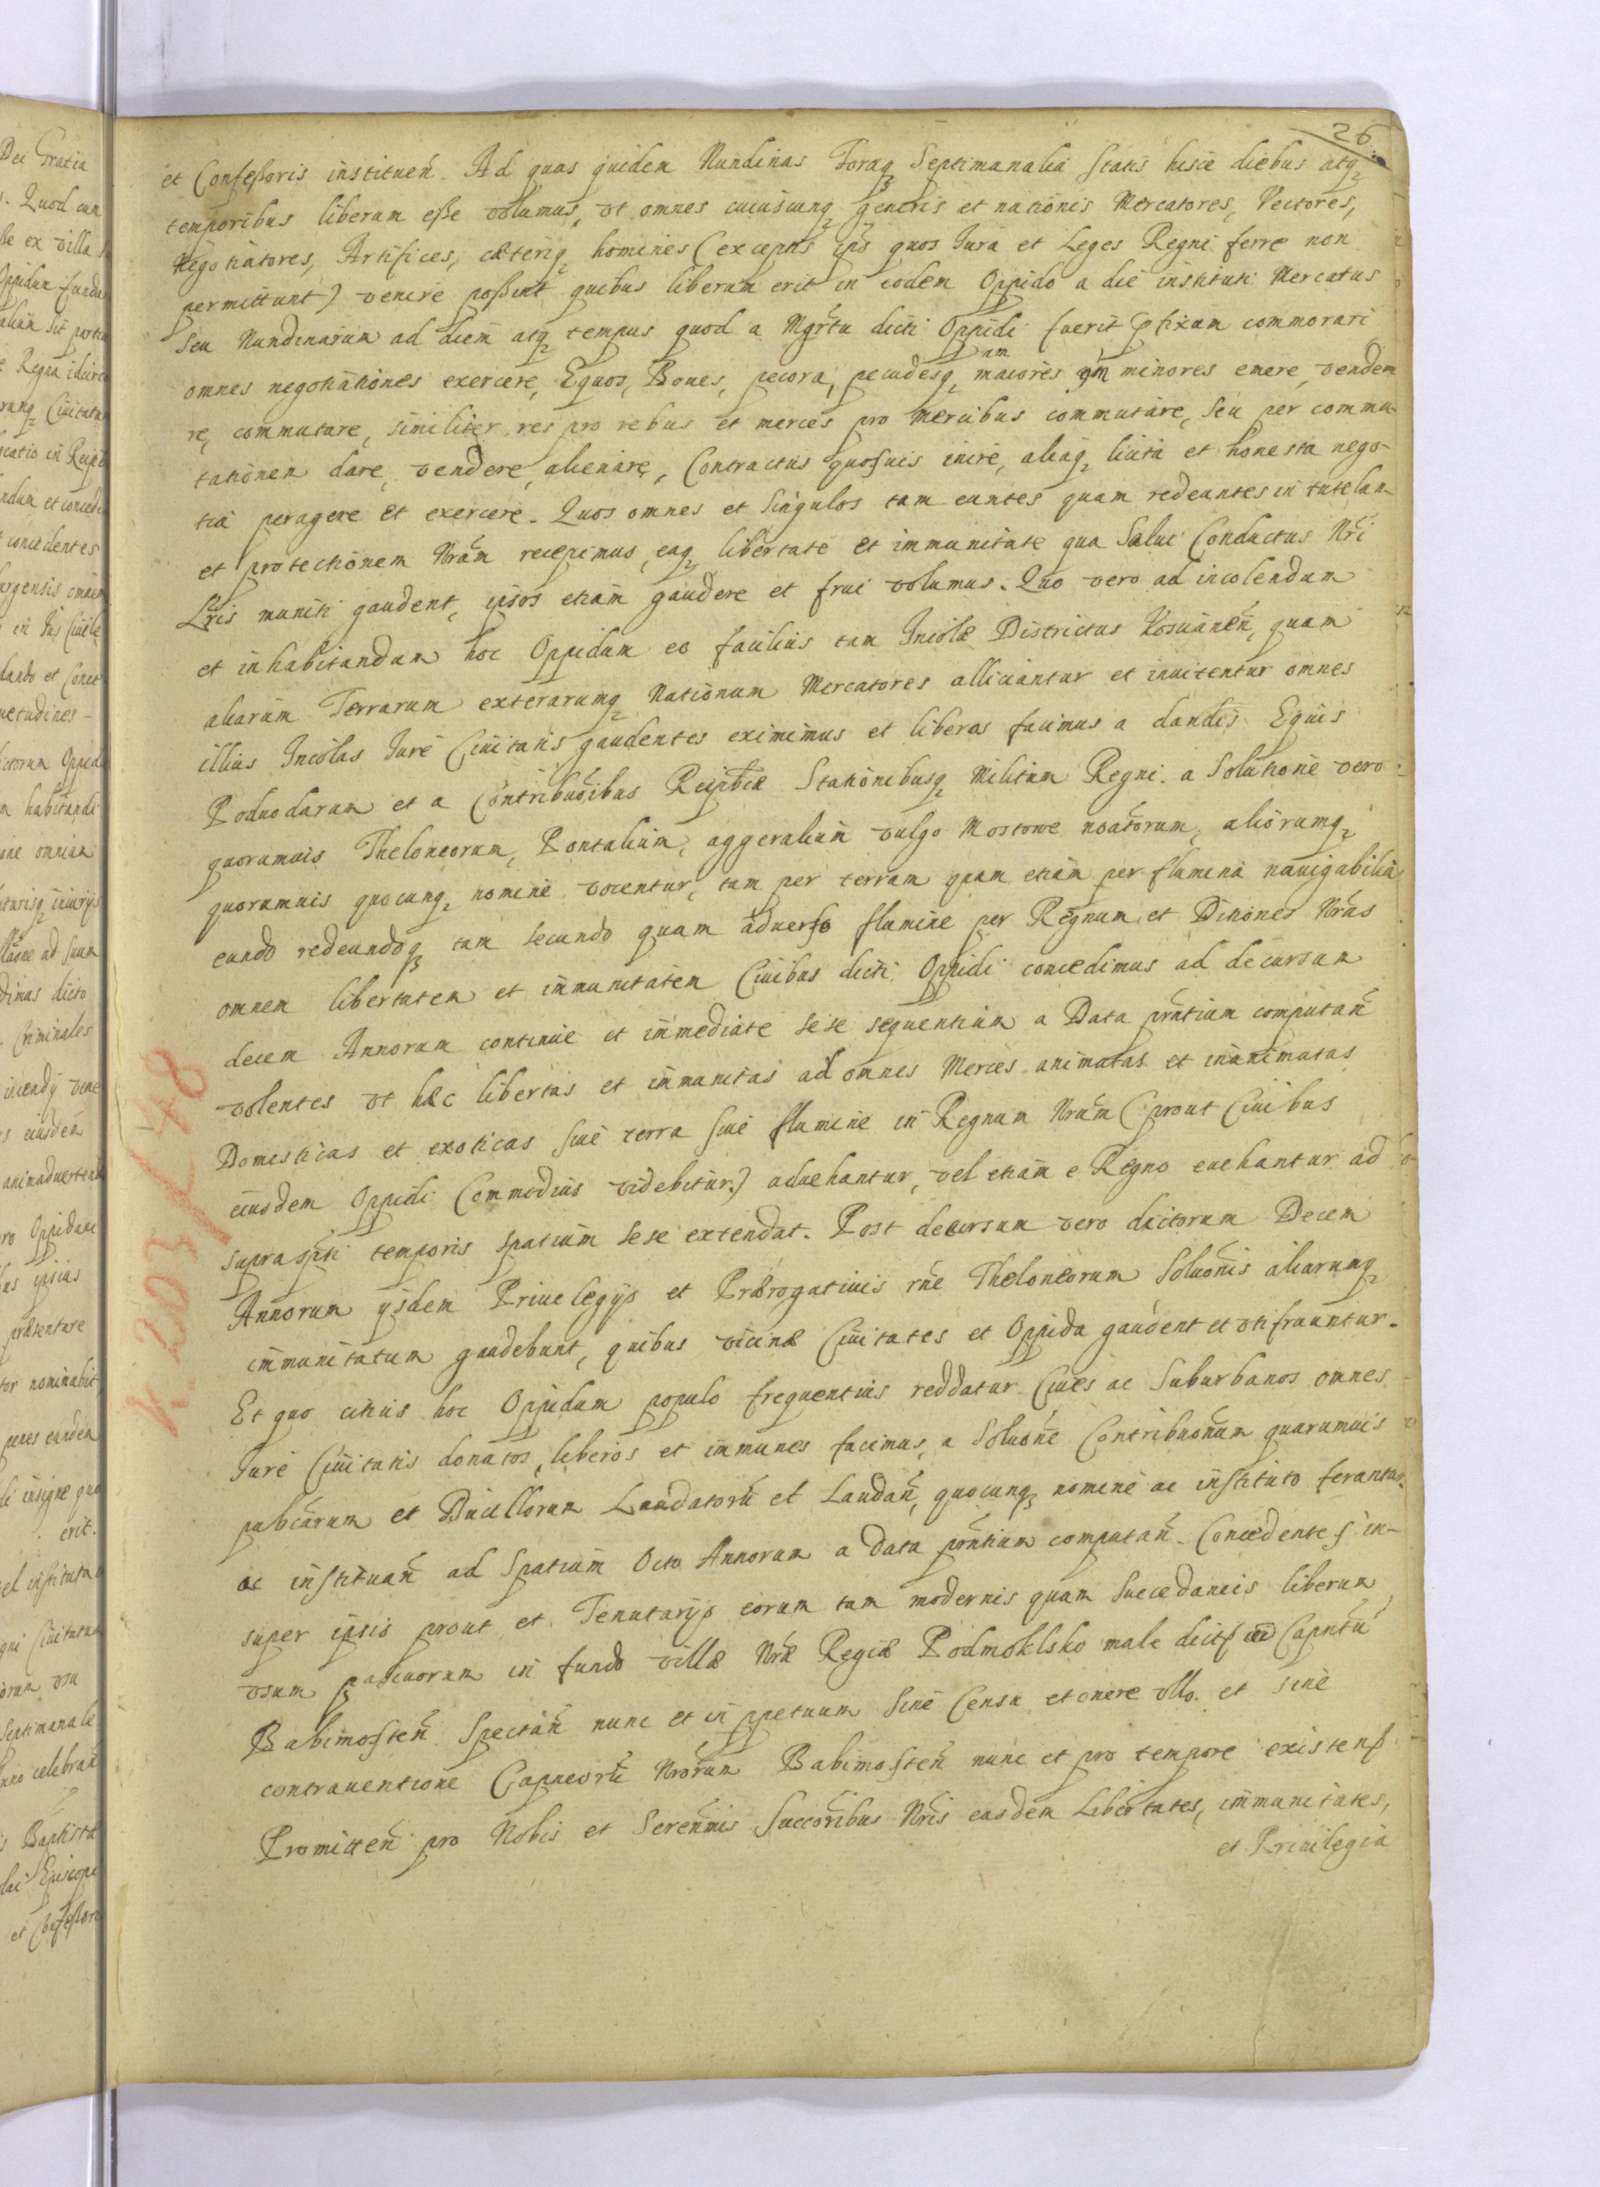 26
et Confeßoris instituen̄. Ad quas quidem Nundinas Foraq₃ Septimanalia Statis hisce diebus atq₃
temporibus liberum eße volumus, vt omnes cuiuscunq₃ generis et nationis Mercatores, Vectores,
Negotiatores, Artifices, cæteriq₃ homines (exceptis ijs quos Jura et Leges Regni ferre non
permittunt) venire poßint quibus liberum erit in eodem Oppido a die instituti Mercatus
Seu Nundinarum ad diem atq₃ tempus quod a Mgrtu dicti Oppidi fuerit p̄fixum commorari
omnes negotiationes exercere, Equos, Boues, pecora, pecudesq₃ maiores quam minores emere, vende-
re, commutare, similiter res pro rebus et merces pro mercibus commutare, seu per commu-
tationem dare, vendere, alienare, Contractus quosuis inire, aliaq₃ licita et honesta nego-
tia peragere et exercere. Quos omnes et Singulos tam euntes quam redeuntes in tutelam
et protectionem Nrām recepimus, eaq₃ libertate et immunitate qua Salui Conductus Nrī
Lrīs muniti gaudent, ipsos etiam gaudere et frui volumus. Quo vero ad incolendum
et inhabitandum hoc Oppidum eo facilius tam Incolæ Districtus Kosuanen̄, quam
aliarum Terrarum exterarumq₃ Nationum Mercatores alliciantur et inuitentur omnes
illius Incolas Jure Ciuitatis gaudentes eximimus et liberos facimus a dandis Equis
Poduodarum et a Contribuoībus Reipb̄cæ Stationibusq₃ Militum Regni. a Solutione vero
quorumuis Theloneorum, Pontalium, aggeralium vulgo Mostowe noatorum, aliorumq₃
quorumuis quocunq₃ nomine vocentur, tam per terram quam etiam per flumina nauigabilia
eundo redeundoq₃ tam secundo quam aduerso flumine per Regnum et Ditiones Nrās
omnem libertatem et immunitatem Ciuibus dicti Oppidi concedimus ad decursum
decem Annorum continue et immediate sese sequentium a Data prn̄tium computan̄
volentes vt hæc libertas et immunitas ad omnes Merces animatas et inanimatas
Domesticas et exoticas siue terra siue flumine in Regnum Nrūm (prout Ciuibus
eiusdem Oppidi Commodius videbitur) aduehantur, vel etiam e Regno euehantur ad
suprasp̄ti temporis spatium sese extendat. Post decursum vero dictorum Decem
Annorum ijsdem Priuelegijs et Prærogatiuis rn̄e Theloneorum Soluōnis aliarumq₃
immunitatum gaudebunt, quibus vicinæ Ciuitates et Oppida gaudent et vtifruuntur.
Et quo citius hoc Oppidum populo frequentius reddatur Ciues ac Suburbanos omnes
Jure Ciuitatis donatos, liberos et immunes facimus, a Soluōne Contribuonum quarumuis
pubcārum et Ducillorum Laudatorū et Laudan̄, quocunq₃ nomine ac instituto ferantur,
ac instituan̄ ad Spatium Octo Annorum a data prn̄tium computan̄. Concedentes in-
super ipsis prout et Tenutarijs eorum tam modernis quam Succedaneis liberum
vsum pascuorum in fundo villæ Nrǣ Regiæ Podmoklsko male dict ad Capn̄tū
Babimosten̄ Spectan̄ nunc et in ppetuum Sine Censu et onere vllo. et sine
contrauentione Capneorū Nrorum Babimosten̄ nunc et pro tempore existen
Promitten̄ pro Nobis et Seren̄mis Succoribus Nrīs easdem Libertates, immunitates,
et Priuilegia
K 203 / 48